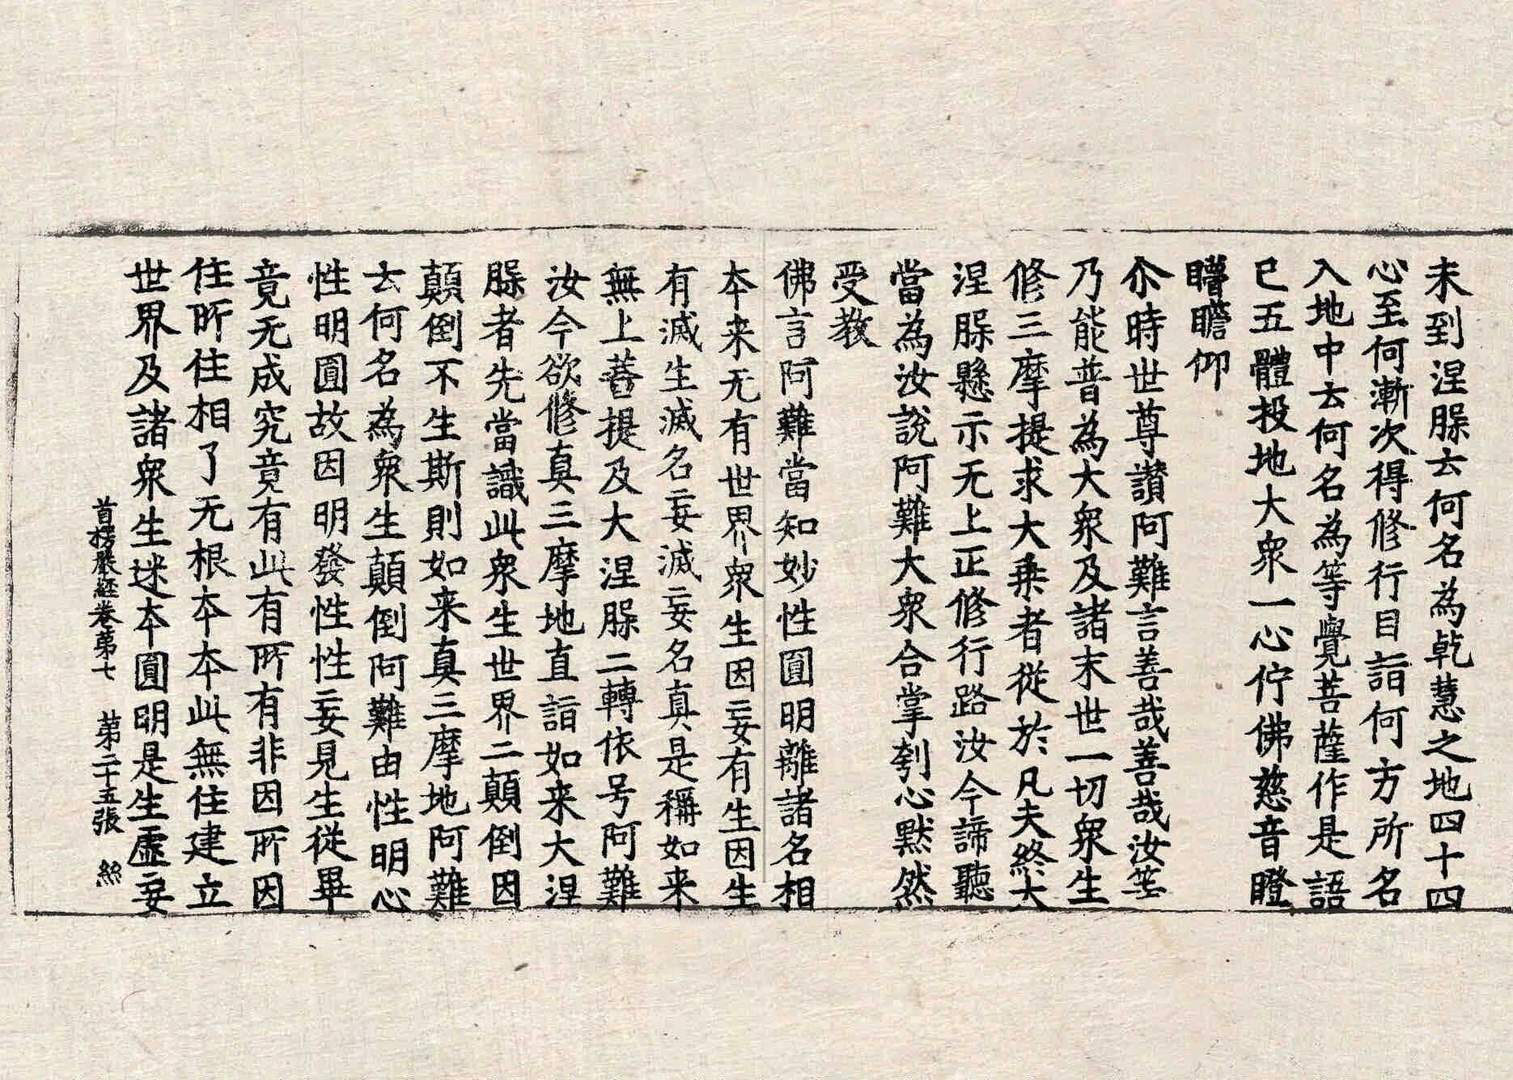 未到涅槃云何名為乹慧之地四十四
心至何漸次得修行目詣何方所名
入地中云何名為等覺菩薩作是語
已五體投地大衆一心佇佛慈音瞪
瞢瞻仰
尒時世尊讃阿難言善哉善哉汝等
乃能普為大衆及諸末世一切衆生
修三摩提求大乗者從於凡夫終大
涅槃懸示无上正修行路汝今諦聽
當為汝說阿難大衆合掌刳心默然
受教
佛言阿難當知妙性圓明離諸名相
本来无有世界衆生因妄有生因生
有滅生滅名妄滅妄名真是稱如来
無上菩提及大涅槃二轉依号阿難
汝今欲修真三摩地直詣如来大涅
槃者先當識此衆生世界二顛倒因
顛倒不生斯則如来真三摩地阿難
云何名為衆生顛倒阿難由性明心
性明圓故因明發性性妄見生從畢
竟无成究竟有此有所有非因所因
住所住相了无根本本此無住建立
世界及諸衆生迷本圓明是生虛妄
首楞嚴經卷第七 第二十五張 絲